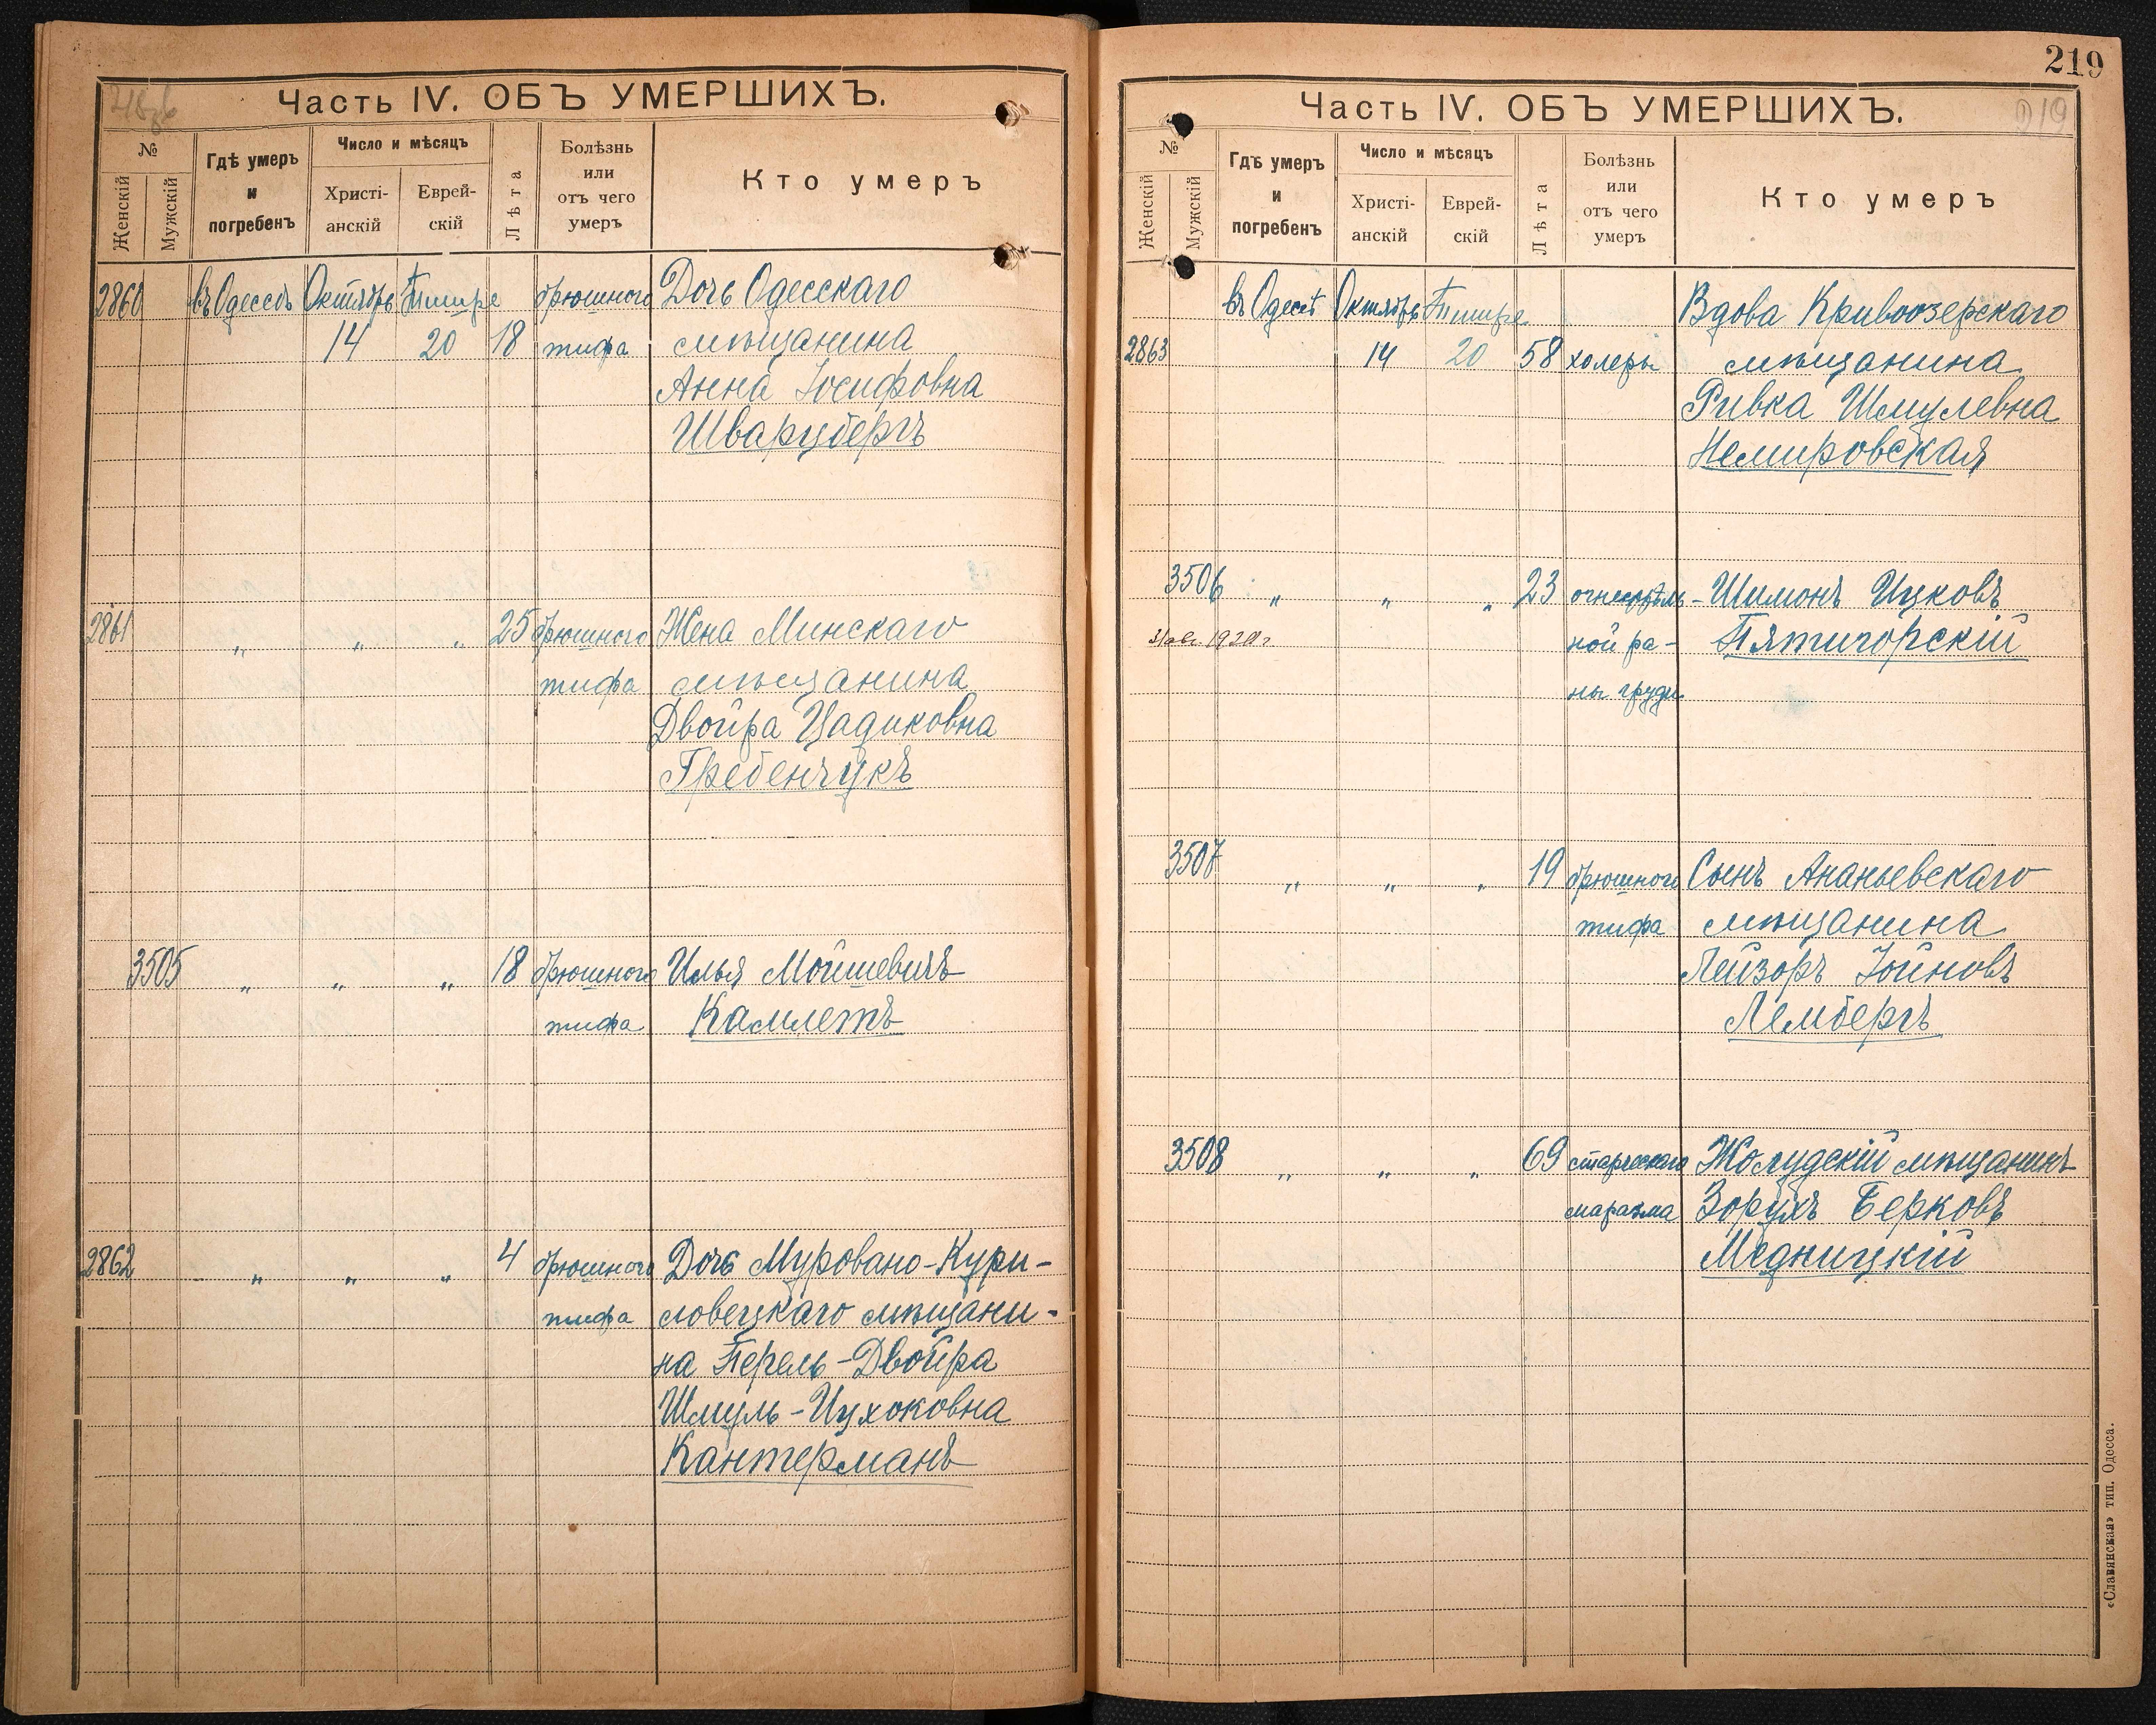 Часть IV. ОБЪ УМЕРШИХЪ.
№
Женскій
Мужскій
Гдѣ умеръ и погребенъ
Число и мѣсяцъ
Христі-
анскій
Еврей-
скій
Лѣта
Болѣзнь
или
отъ чего
умеръ
Кто умеръ
2860 въ Одессѣ Октябрь Тишре брюшного Дочь Одесскаго
14 20 18 тифа мѣщанина
Анна Іосифовна
Шварцбергъ
2861 „ „ „ 25 брюшного Жена Минскаго
тифа мѣщанина
Двойра Цадиковна
Гребенчукъ
3505 „ „ „ 18 брюшного Илья Мойшевичъ
тифа Камлетъ
2862 „ „ „ 4 брюшного Дочь Муровано-Кури-
тифа ловецкаго мѣщани-
на Перель-Двойра
Шмуль-Ицхоковна
Кантерманъ
219
Часть IV. ОБЪ УМЕРШИХЪ.
219
№
Женскій
Мужскій
Гдѣ умеръ
и
погребенъ
Число и мѣсяцъ
Христі-
анскій
Еврей-
скій
Лѣта
Болѣзнь
или
отъ чего
умеръ
Кто умеръ
въ Одессѣ Октябрь Тишре Вдова Кривоозерскаго
2863 14 20 58 холеры мѣщанина
Ривка Шмулевна
Немировская
3506 „ „ „ 23 огнестрѣль- Шимонъ Ицковъ
1920 г ной ра- Пятигорскій
ны груди
3507 „ „ „ 19 брюшного Сынъ Ананьевскаго
тифа мѣщанина
Лейзоръ Іойновъ
Лембергъ
3508 „ „ „ 69 старческаго Жолудскій мѣщанинъ
маразма Зорухъ Берковъ
Медницкій
«Славянская» тип. Одесса.